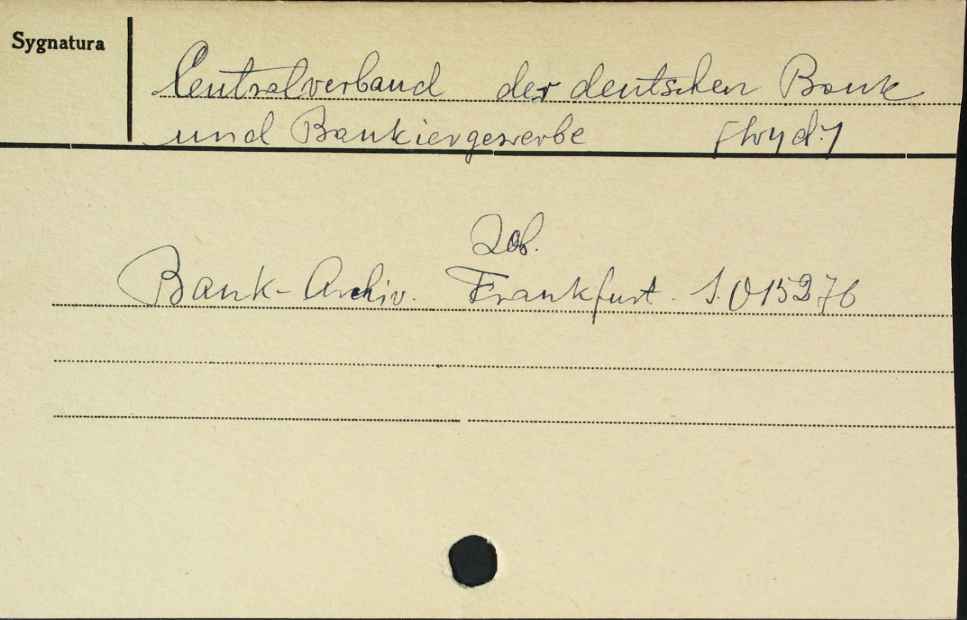 Sygnatura
Centralverband der deutschen Bank
und Bankiergewerbe [hyd.]
Zob.
Bank-Archiv. Frankfurt. S.015276